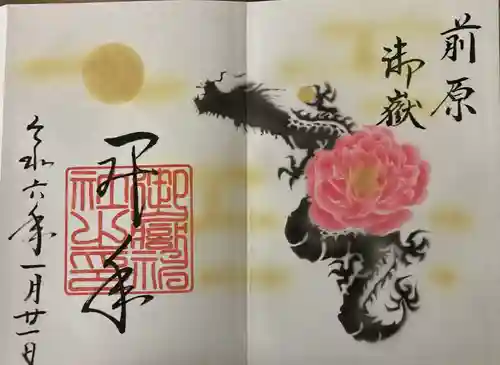 前原
御嶽
御嶽神
社之印
令和六年一月廿一日